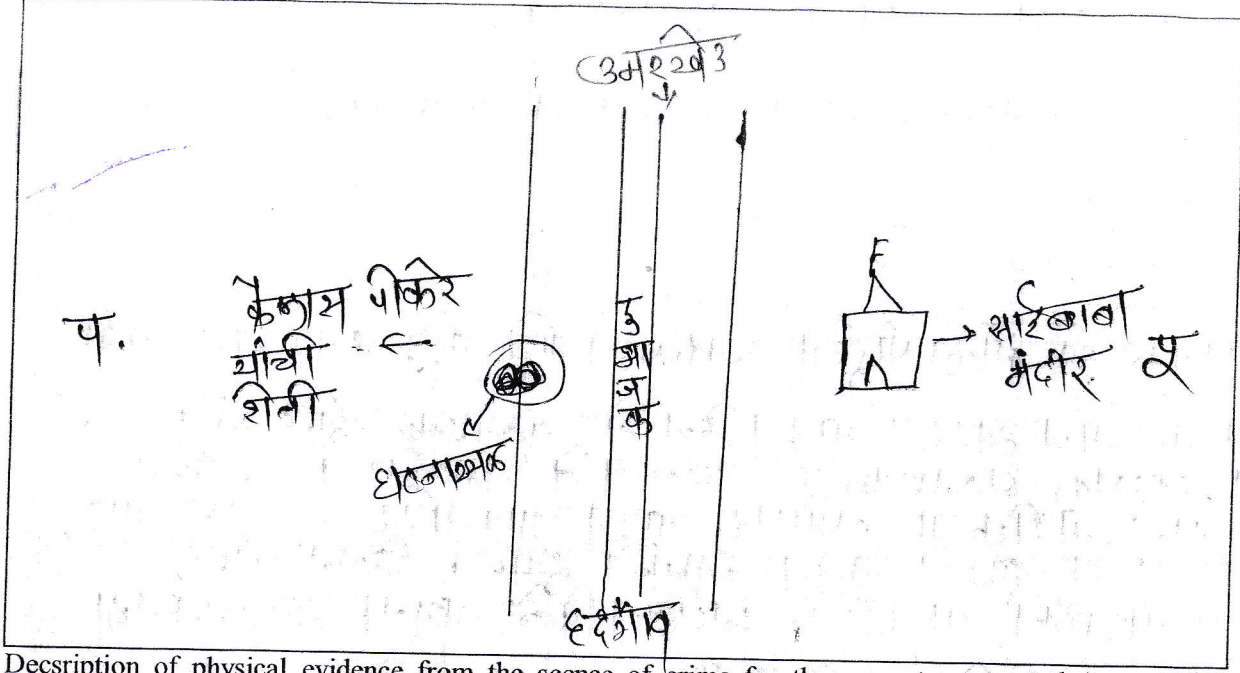 उमरखेड
कैलास पीकरे
यांची
शेती
प.
घटनास्थळ
दुभाजक
साईबाबा
मंदीर.
पू
हदगांव
Decsription of physical evidence from the scence of crime for the